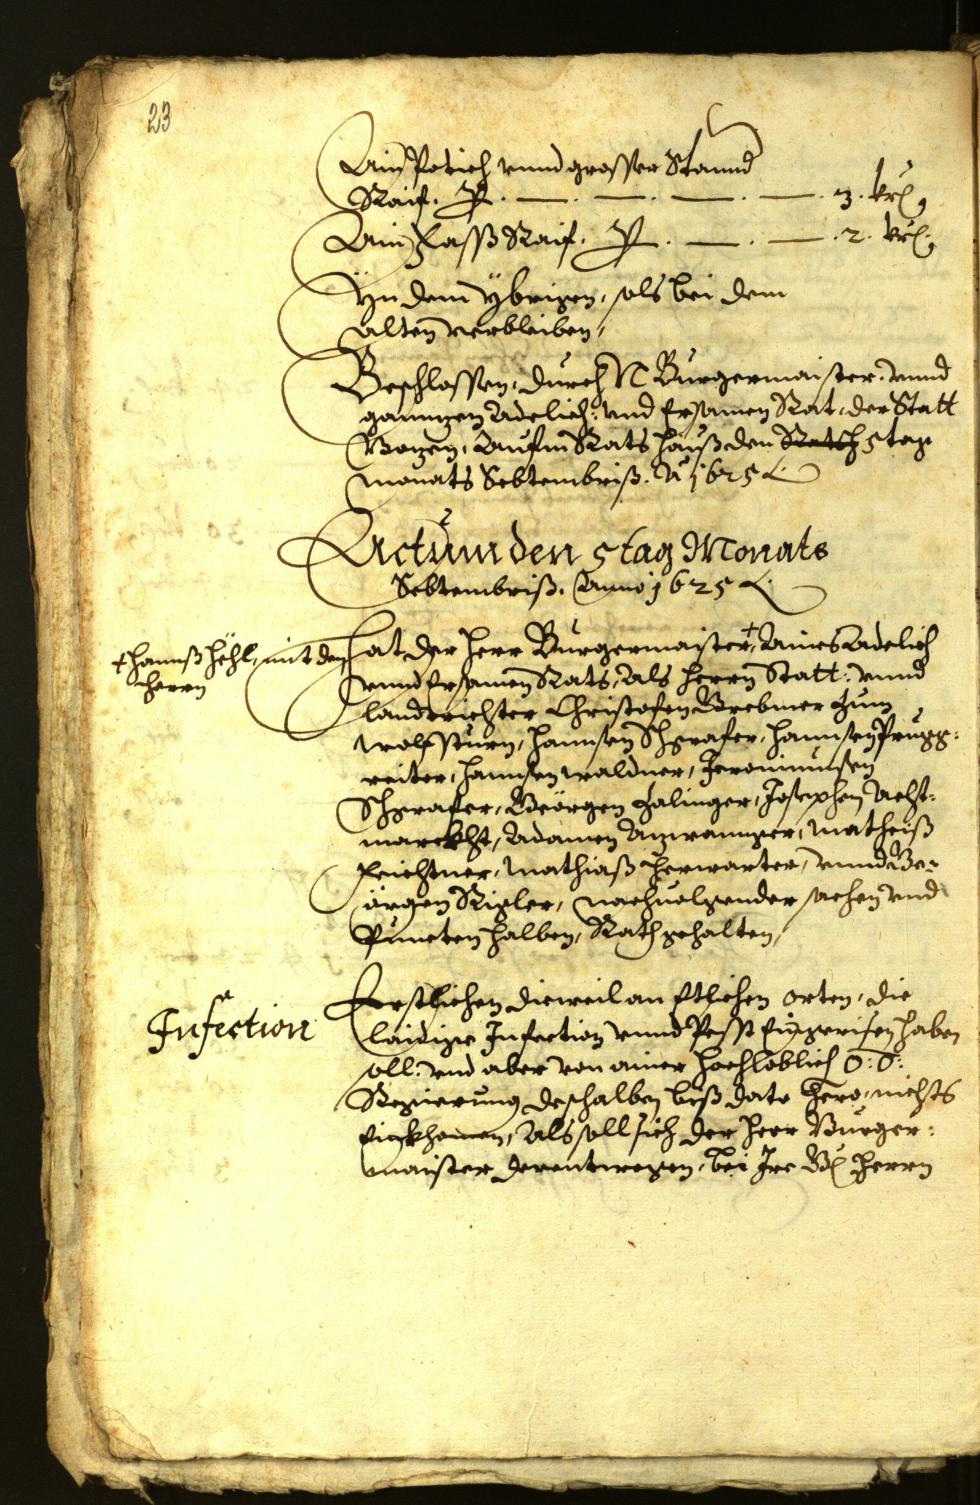 23
Ain Potich vnnd grosser Stannd
Raif. P. — — — — 3. krz
Ain Fassß Raif. P. — — 2. krz
Yn dem ybrigen, sols bei dem
alten verbleiben,
Beschlossen, durch N Burgermaister vnnd
gannzen Adelich: vnd Ersamen Rat, der Statt
Bozen, Auf'm Rats hauß den 5 tag
monats Sebtembriß. A 1625
Actum den 5 tag Monats
Sebtembriß. Anno 1625
Hat der herr Burgermaister +, Aines Adelich
+ Hannß Hehl, mit den
herrn
vnnd Ersamen Rats, Als herrn Statt: vnnd
landtrichter Christofen Brebmer zum
Wolfsturn, Hannsen Schgrafer, Hannsen Prugg:
reiter, Hannsen Waldner, Jeronimusen
Schgrafer, Geörgen Zalinger, Josephen Aehst:
marckht, Adamen Anzwannger, Matheiß
Feichtner, Mathiaß Herwarter, vnnd Ge:
örgen Rigler, nachuolgender sachen vnd
Puncten halben, Rath gehalten,
Infection
Erstlichen dieweil an Etlichen orten, die
laidige Infection vnnd Pesst Eingerisen haben
soll: vnd aber von ainer hochloblich O: Ö:
Regierung deshalben biß dato hero, nichts
Einkhomen, Als soll sich der herr Burger:
maister derentwegen, bei Ire G herrn